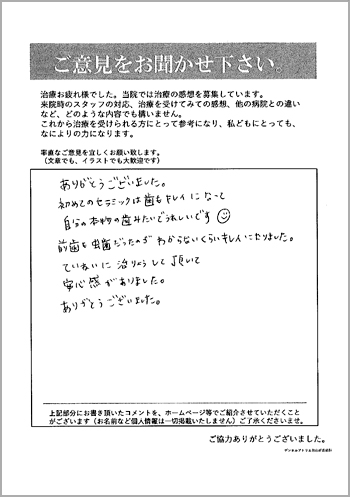 ご意見をお聞かせ下さい。
治療お疲れ様でした。当院では治療の感想を募集しています。
来院時のスタッフの対応、治療を受けてみての感想、他の病院との違い
など、どのような内容でも構いません。
これから治療を受けられる方にとって参考になり、私どもにとっても、
なによりの力になります。
率直なご意見を宜しくお願い致します。
(文章でも、イラストでも大歓迎です)
ありがとうございました。
初めてのセラミックは歯もキレイになって
自分の本物の歯みたいでうれしいです☺
前歯も虫歯だったのがわからないくらいキレイになりました。
ていねいに治りょうして頂いて
安心感がありました。
ありがとうございました。
上記部分にお書き頂いたコメントを、ホームページ等でご紹介させていただくこと
がございます(お名前など個人情報は一切掲載いたしません)ご了承くださいませ。
ご協力ありがとうございました。